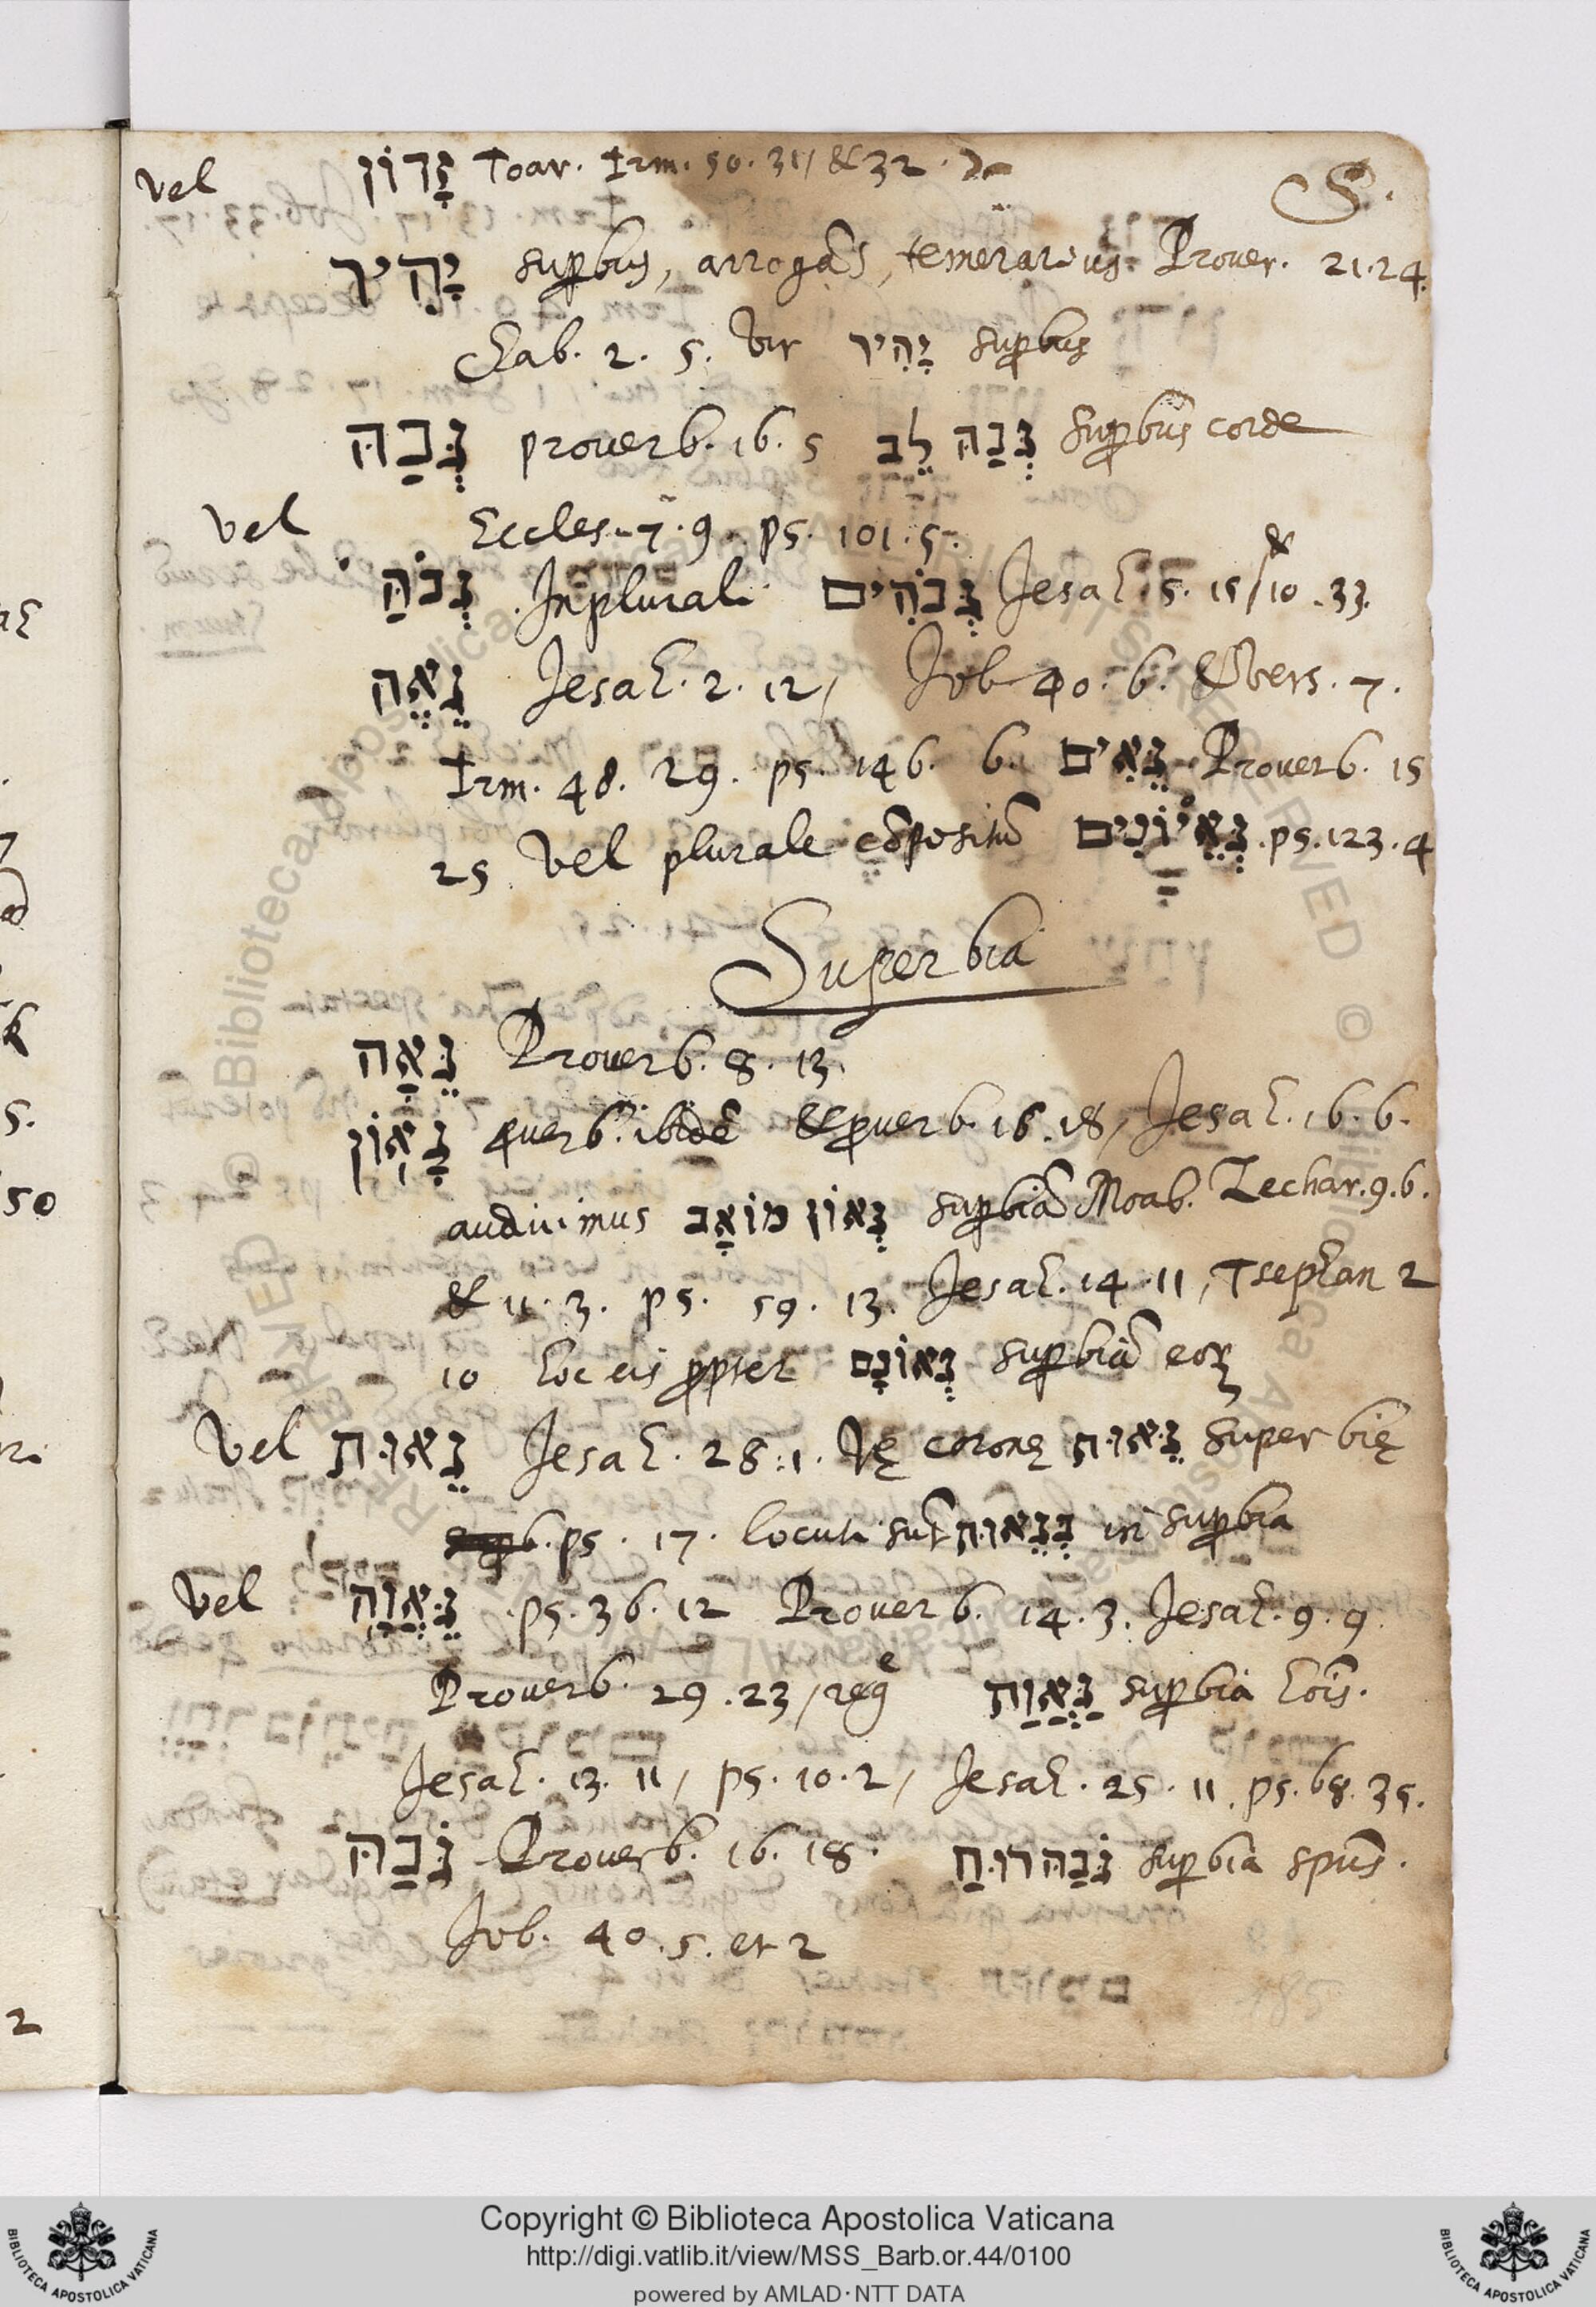 S.
Vel זָדוֹן Toar. Irm. 50. 31, & 32.
יָהִיר supbus, arrogãs, temerarius Prouer. 21.24.
Hab. 2. 5. Vir יָהִיר supbus
גְּבַהּ prouerb. 16. 5 גְּבַהּ לֵב supbus corde
Vel Eccles. 7. 9. ps. 101. 5.
גְּבֹהַּ In plurali גְּבֹהִים Jesah. 5. 15 & 10. 33.
גֵּאֶה Jesah. 2. 12, Job 40. 6. & vers. 7.
Irm. 48. 29. ps. 146. 6. גֵּאִים Prouerb. 15
25. Vel plurale cõpositũ גְּאֵיוֹנִים. ps. 123. 4
Superbia
גֵּאָה Prouerb. 8. 13
גָּאוֹן puerb. ibidẽ & puerb. 16. 18, Jesah. 16. 6.
audiuimus גְּאוֹן מוֹאָב supbiã Moab. Zechar. 9. 6.
& 11. 3. ps. 59. 13. Jesah. 14. 11, Tsephan 2
10 hoc eis ppter גְּאוֹנָם supbiã eoꝝ
Vel גֵּאוּת Jesah. 28. 1. Vę coronę גֵּאוּת superbię
ps. 17. locuti sut בְּגֵאוּת in supbia
Vel גַּאֲוָה ps. 36. 12 Prouerb. 14. 3. Jesah. 9. 9.
Prouerb. 29. 23, regẽ גַּאֲוַת supbia hoĩs.
Jesah. 13. 11, ps. 10. 2, Jesah. 25. 11. ps. 68. 35.
גֹּבַהּ Prouerb. 16. 18. גֹּבַהּ רוּחַ supbia spũs.
Job. 40. 5. et 2
Copyright © Biblioteca Apostolica Vaticana
http://digi.vatlib.it/view/MSS_Barb.or.44/0100
powered by AMLAD·NTT DATA
BIBLIOTECA APOSTOLICA VATICANA
BIBLIOTECA APOSTOLICA VATICANA